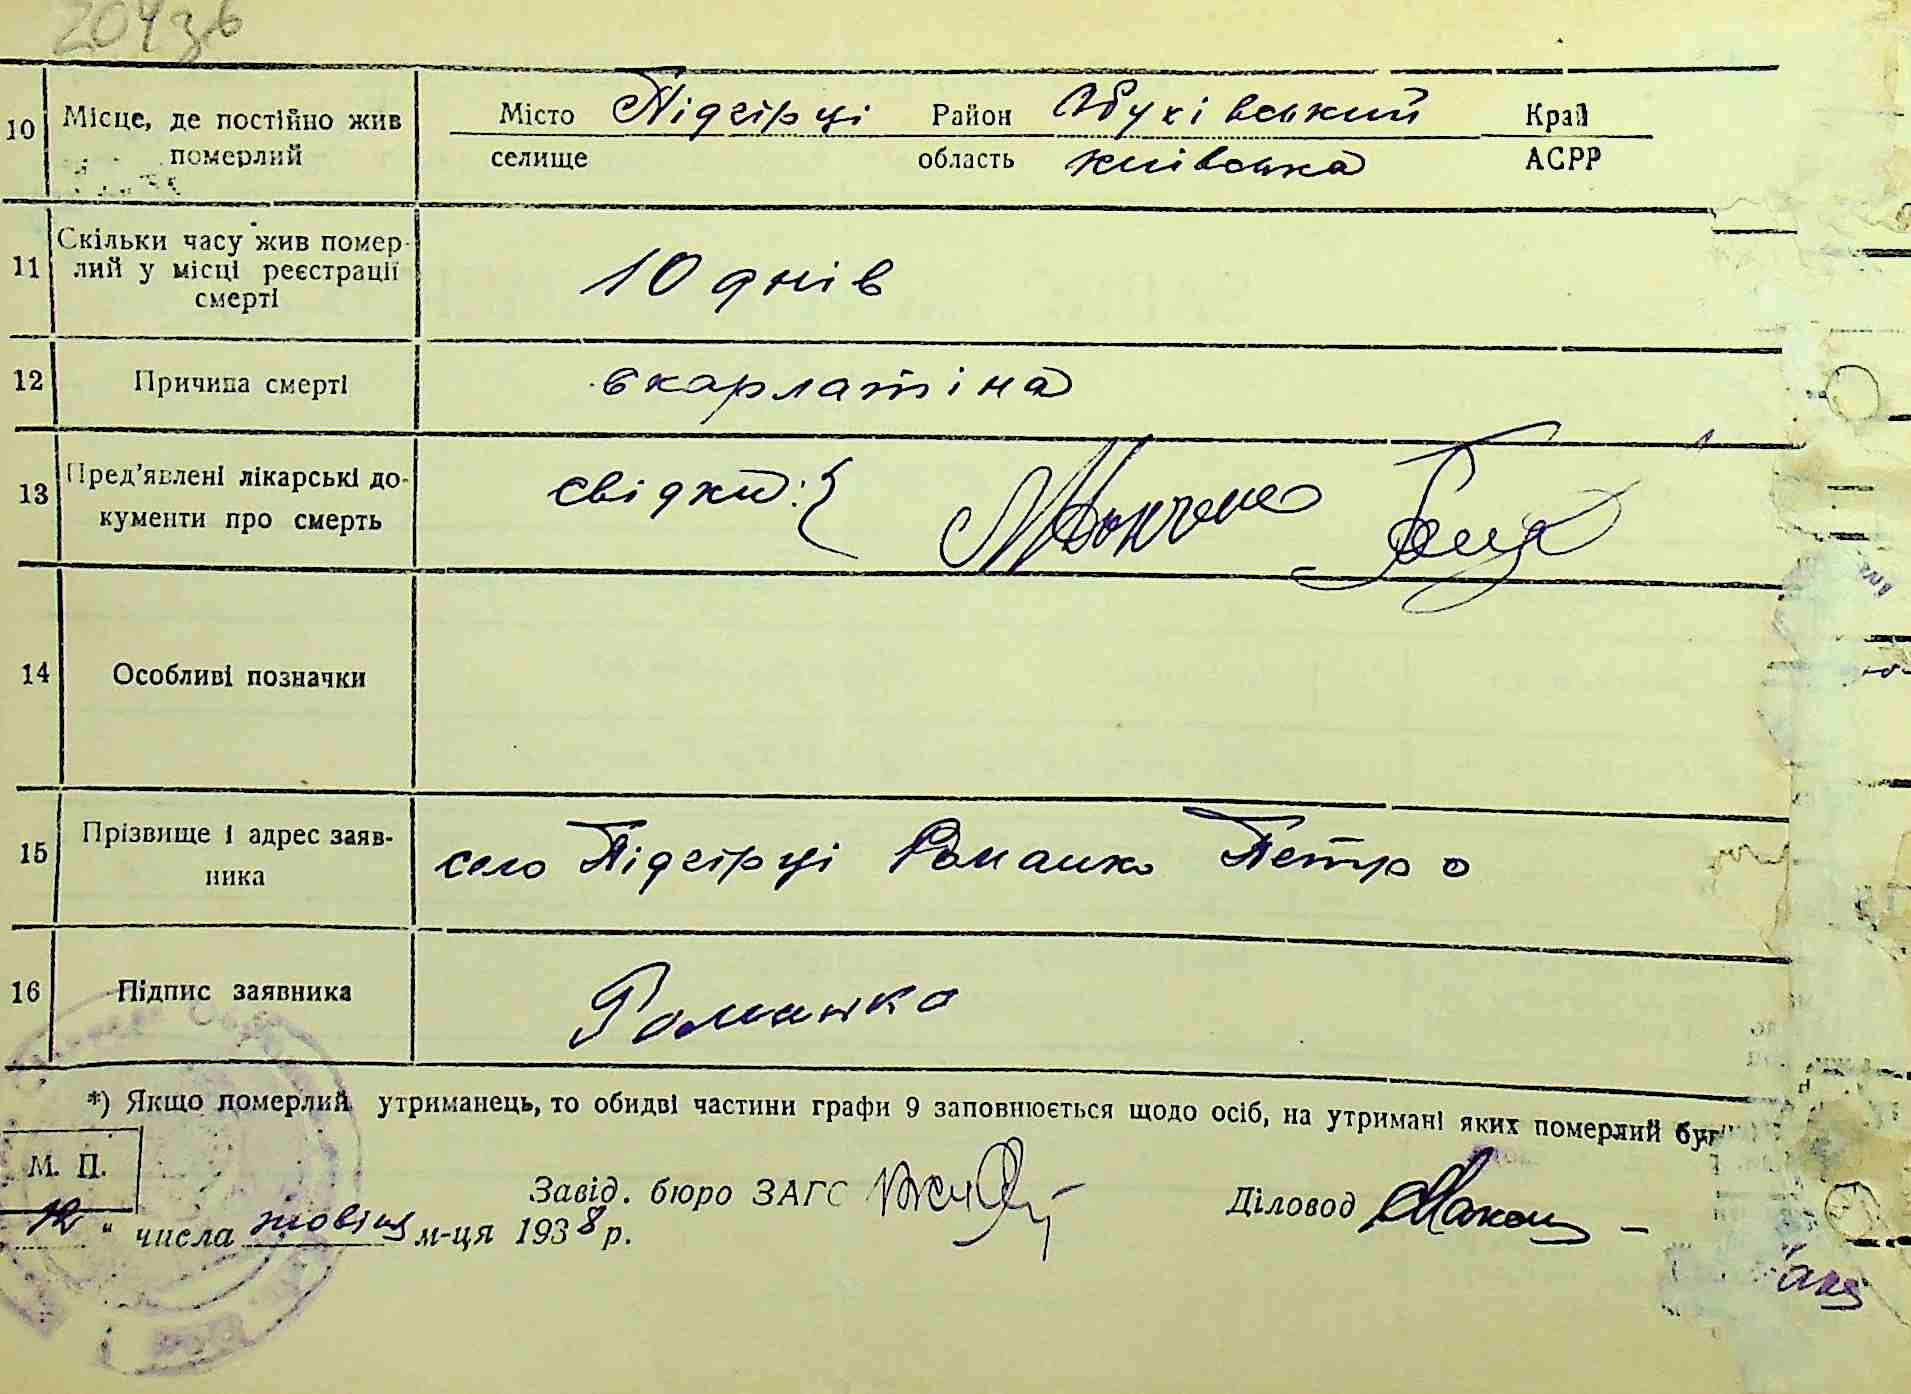 204зв
10 Місце, де постійно жив померлий Місто Підгірці Район Обухівський Край
селище область київська АСРР
11 Скільки часу жив померлий у місці реєстрації смерті 10 днів
12 Причина смерті скарлатіна
13 Пред'явлені лікарські документи про смерть свідки:
14 Особливі позначки
15 Прізвище і адрес заявника село Підгірці Романко Петро
16 Підпис заявника Романко
*) Якщо померлий утриманець, то обидві частини графи 9 заповнюється щодо осіб, на утримані яких померлий був
М. П.
Завід. бюро ЗАГС Діловод
12 " числа жовтня м-ця 1938 р.